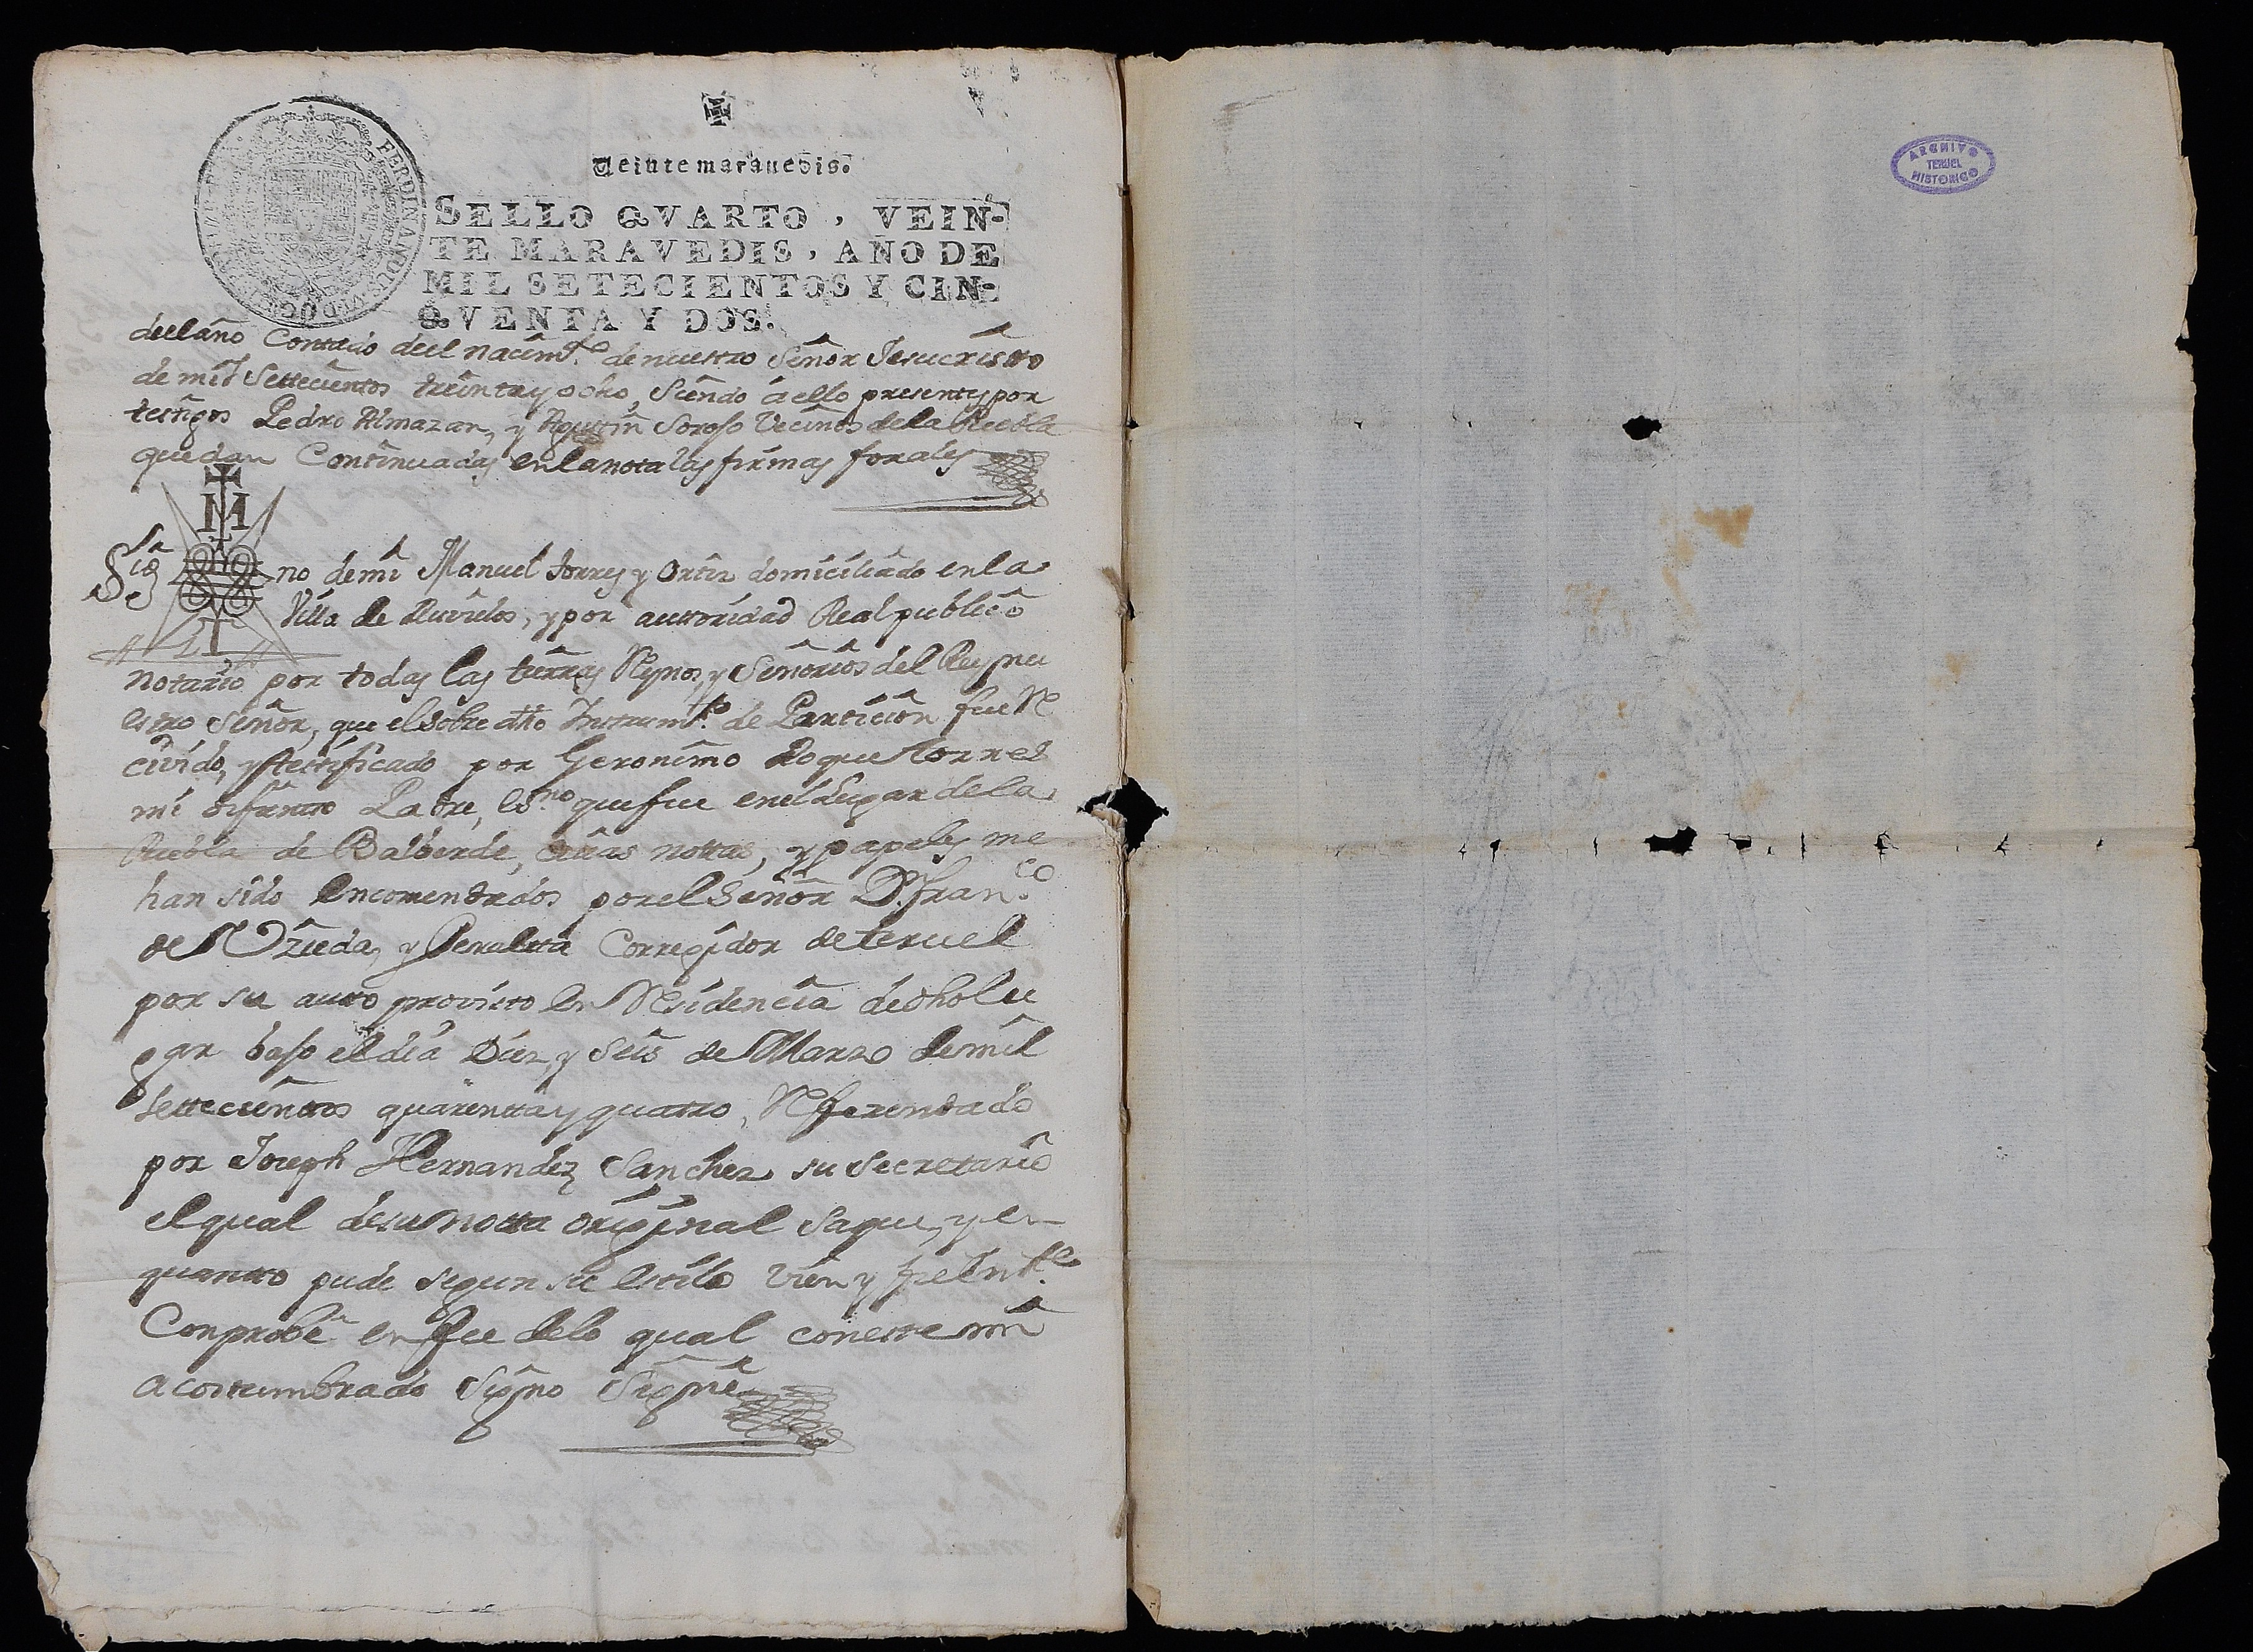 Veinte maravedis.
SELLO QVARTO, VEIN-
TE MARAVEDIS, AÑO DE
MIL SETECIENTOS Y CIN-
QVENTA Y DOS.
deel año Contado deel nacim.to de nuestro Señor Jesucristo
de mil Settecientos treinta y ocho, Siendo a ello presentes por
testigos Pedro Almazan, y Agustin Soroso Vecinos de la Puebla
quedan Continuadas en la nota las firmas forales
Sig no de mi Manuel torres y Ortiz domiciliado en la
Villa de Ruvielos, y por auttoridad Real publico
Notario por todas las tierras Reynos, y Señorios del Rey nu
estro Señor, que el sobre dho Instrum.to de Particion fue Re
civido, y testificado por Geronimo Roque torres
mi difuntto Padre, es.no que fue en el Lugar de la
Puebla de Balberde, cuias nottas, y papeles me
han sido encomendados por el Señor D. Fran.co
de Uzeda, y Peraltta Corregidor de teruel
por su autto provisto en Residencia de dho lu
gar bajo el dia Diez, y Seis de Marzo de mil
settecienttos quarentta y quatro, Referendado
por Joseph Hernandez Sanchez su Secretario
el qual de su notta original saque, y en
quantto pude segun su estilo vien y fielm.te
Conprobe en fee de lo qual con este mi
acosttumbrado Signo Signé
ARCHIVO
TERUEL
HISTORICO